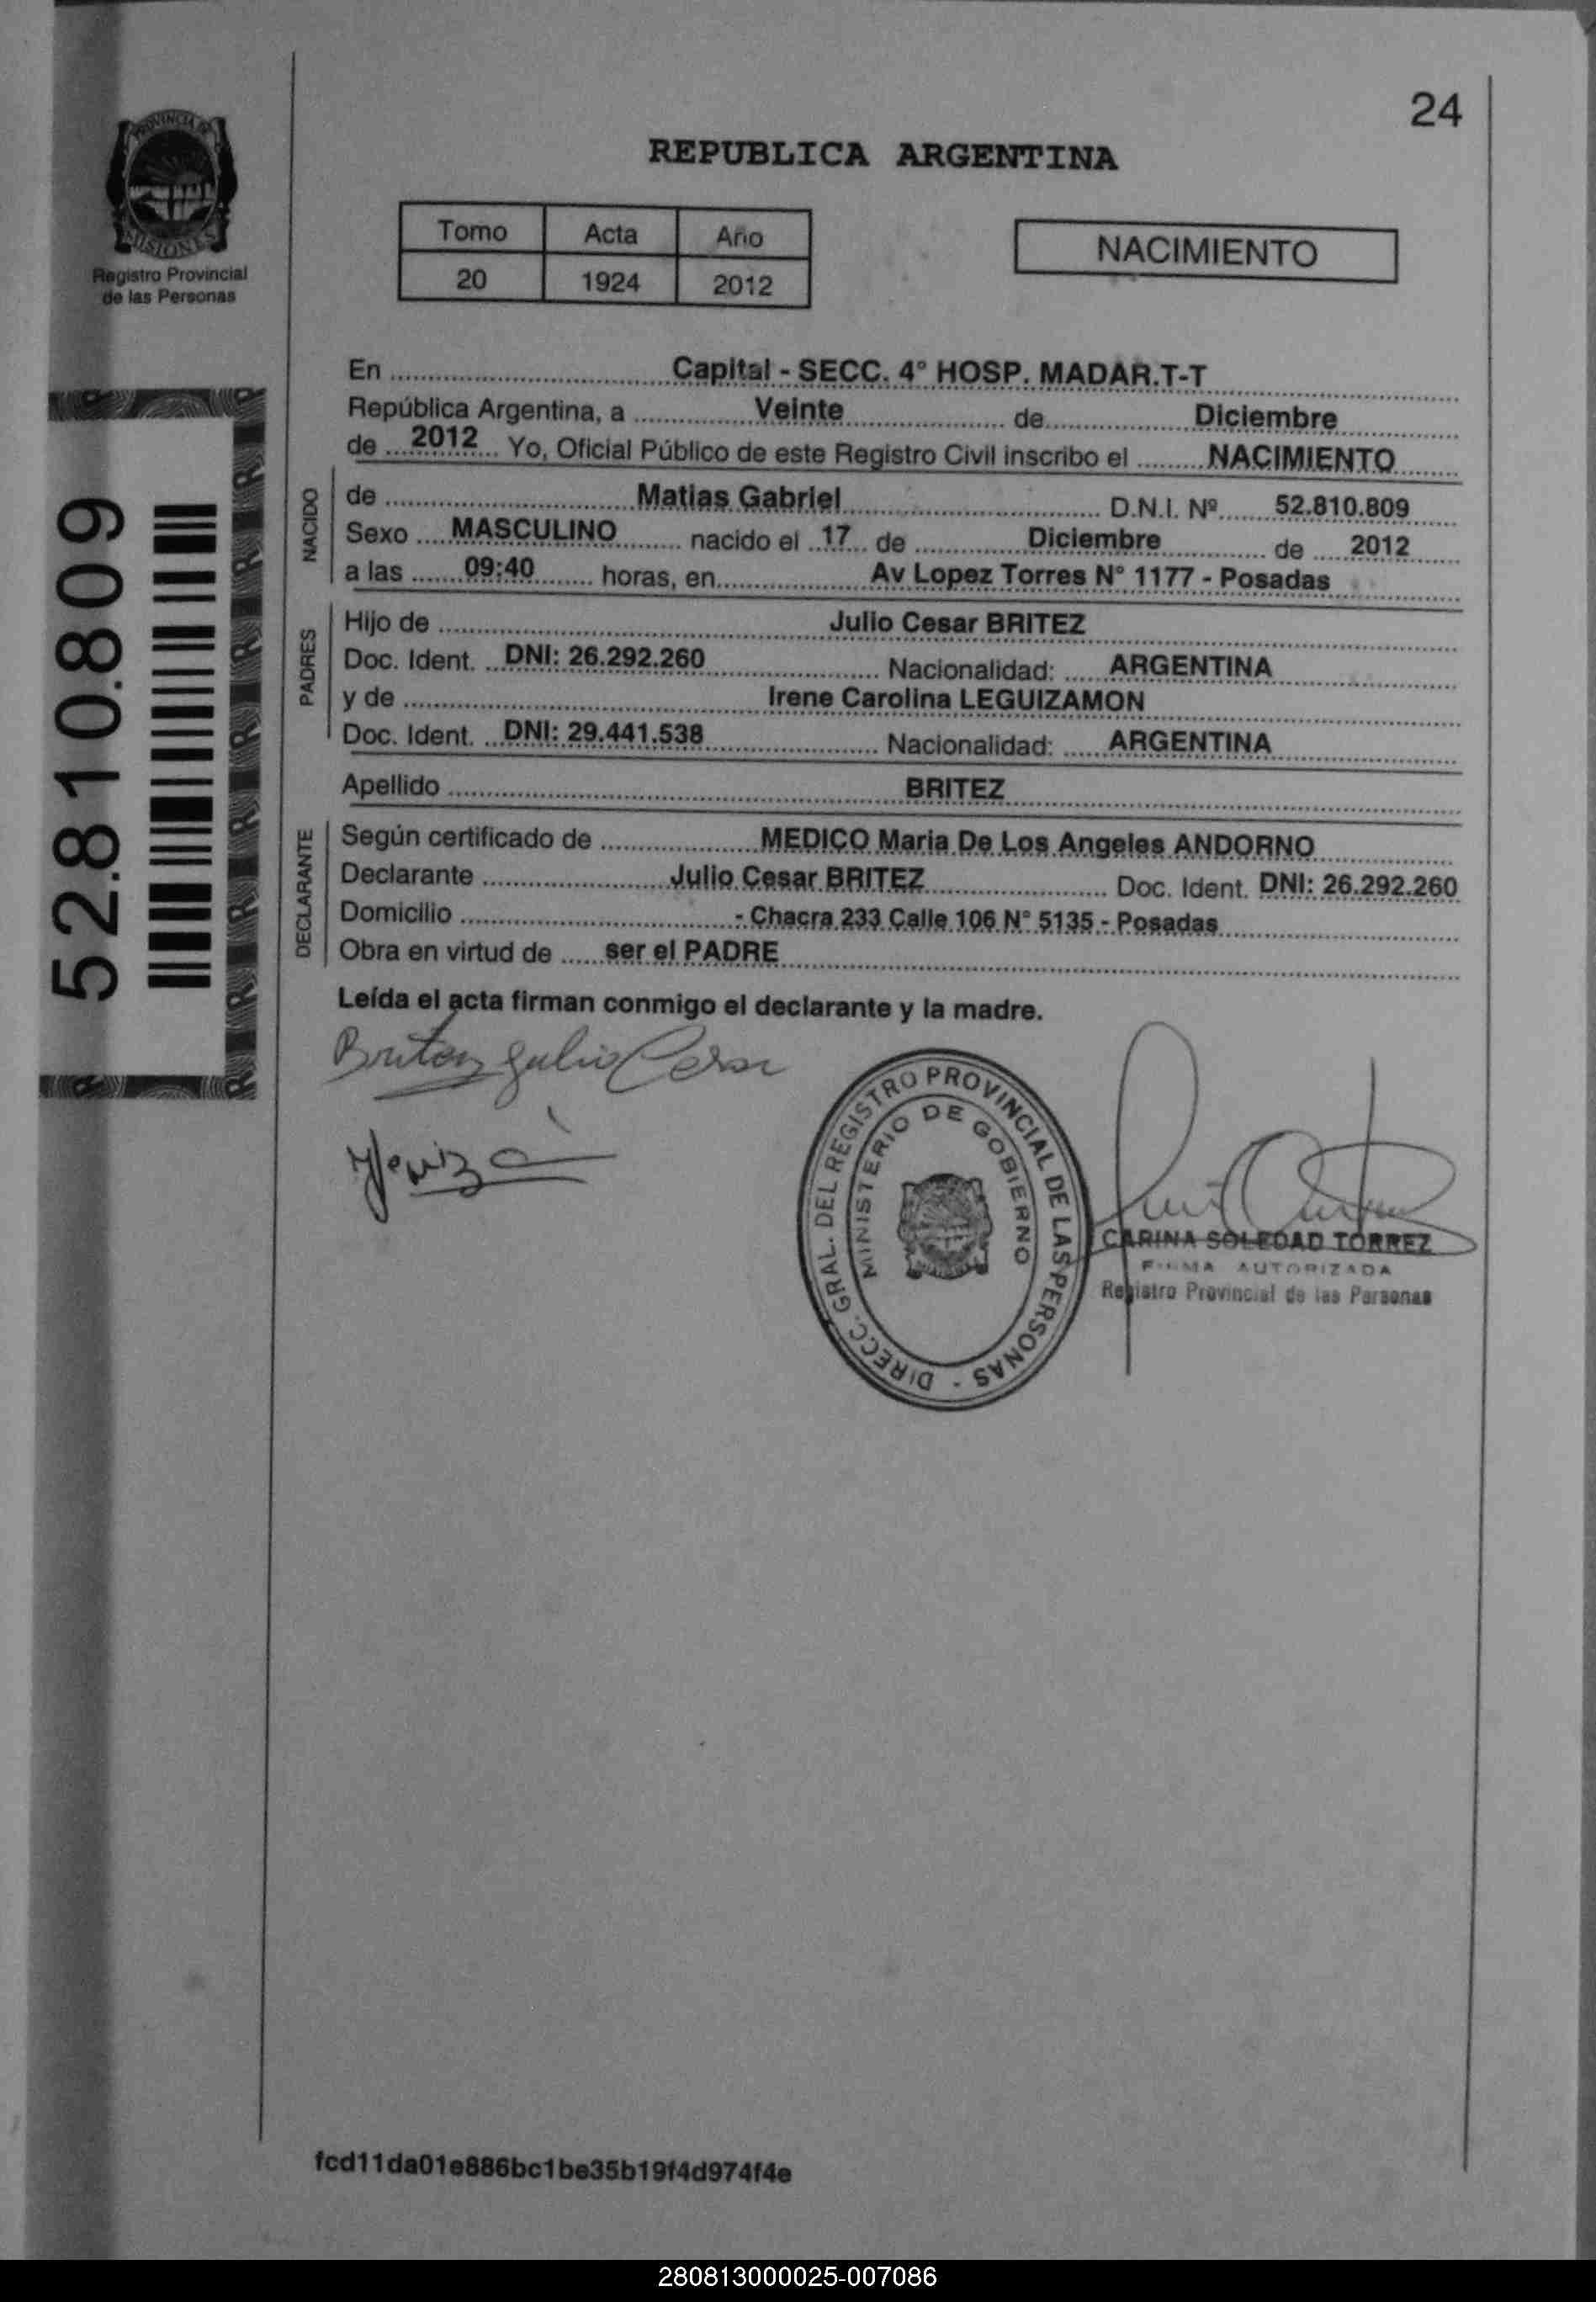 24
REPUBLICA ARGENTINA
PROVINCIA DE
MISIONES
Registro Provincial
de las Personas
Tomo Acta Año
20 1924 2012
NACIMIENTO
En Capital - SECC. 4° HOSP. MADAR.T-T
República Argentina, a Veinte de Diciembre
de 2012 Yo, Oficial Público de este Registro Civil inscribo el NACIMIENTO
NACIDO
de Matias Gabriel D.N.I. Nº 52.810.809
Sexo MASCULINO nacido el 17 de Diciembre de 2012
a las 09:40 horas, en Av Lopez Torres N° 1177 - Posadas
PADRES
Hijo de Julio Cesar BRITEZ
Doc. Ident. DNI: 26.292.260 Nacionalidad: ARGENTINA
y de Irene Carolina LEGUIZAMON
Doc. Ident. DNI: 29.441.538 Nacionalidad: ARGENTINA
Apellido BRITEZ
DECLARANTE
Según certificado de MEDICO Maria De Los Angeles ANDORNO
Declarante Julio Cesar BRITEZ Doc. Ident. DNI: 26.292.260
Domicilio - Chacra 233 Calle 106 N° 5135 - Posadas
Obra en virtud de ser el PADRE
Leída el acta firman conmigo el declarante y la madre.
52.810.809
Britez Julio Cesar
DIRECC. GRAL. DEL REGISTRO PROVINCIAL DE LAS PERSONAS -
MINISTERIO DE GOBIERNO
CARINA SOLEDAD TORREZ
FIRMA AUTORIZADA
Registro Provincial de las Personas
fcd11da01e886bc1be35b19f4d974f4e
280813000025-007086